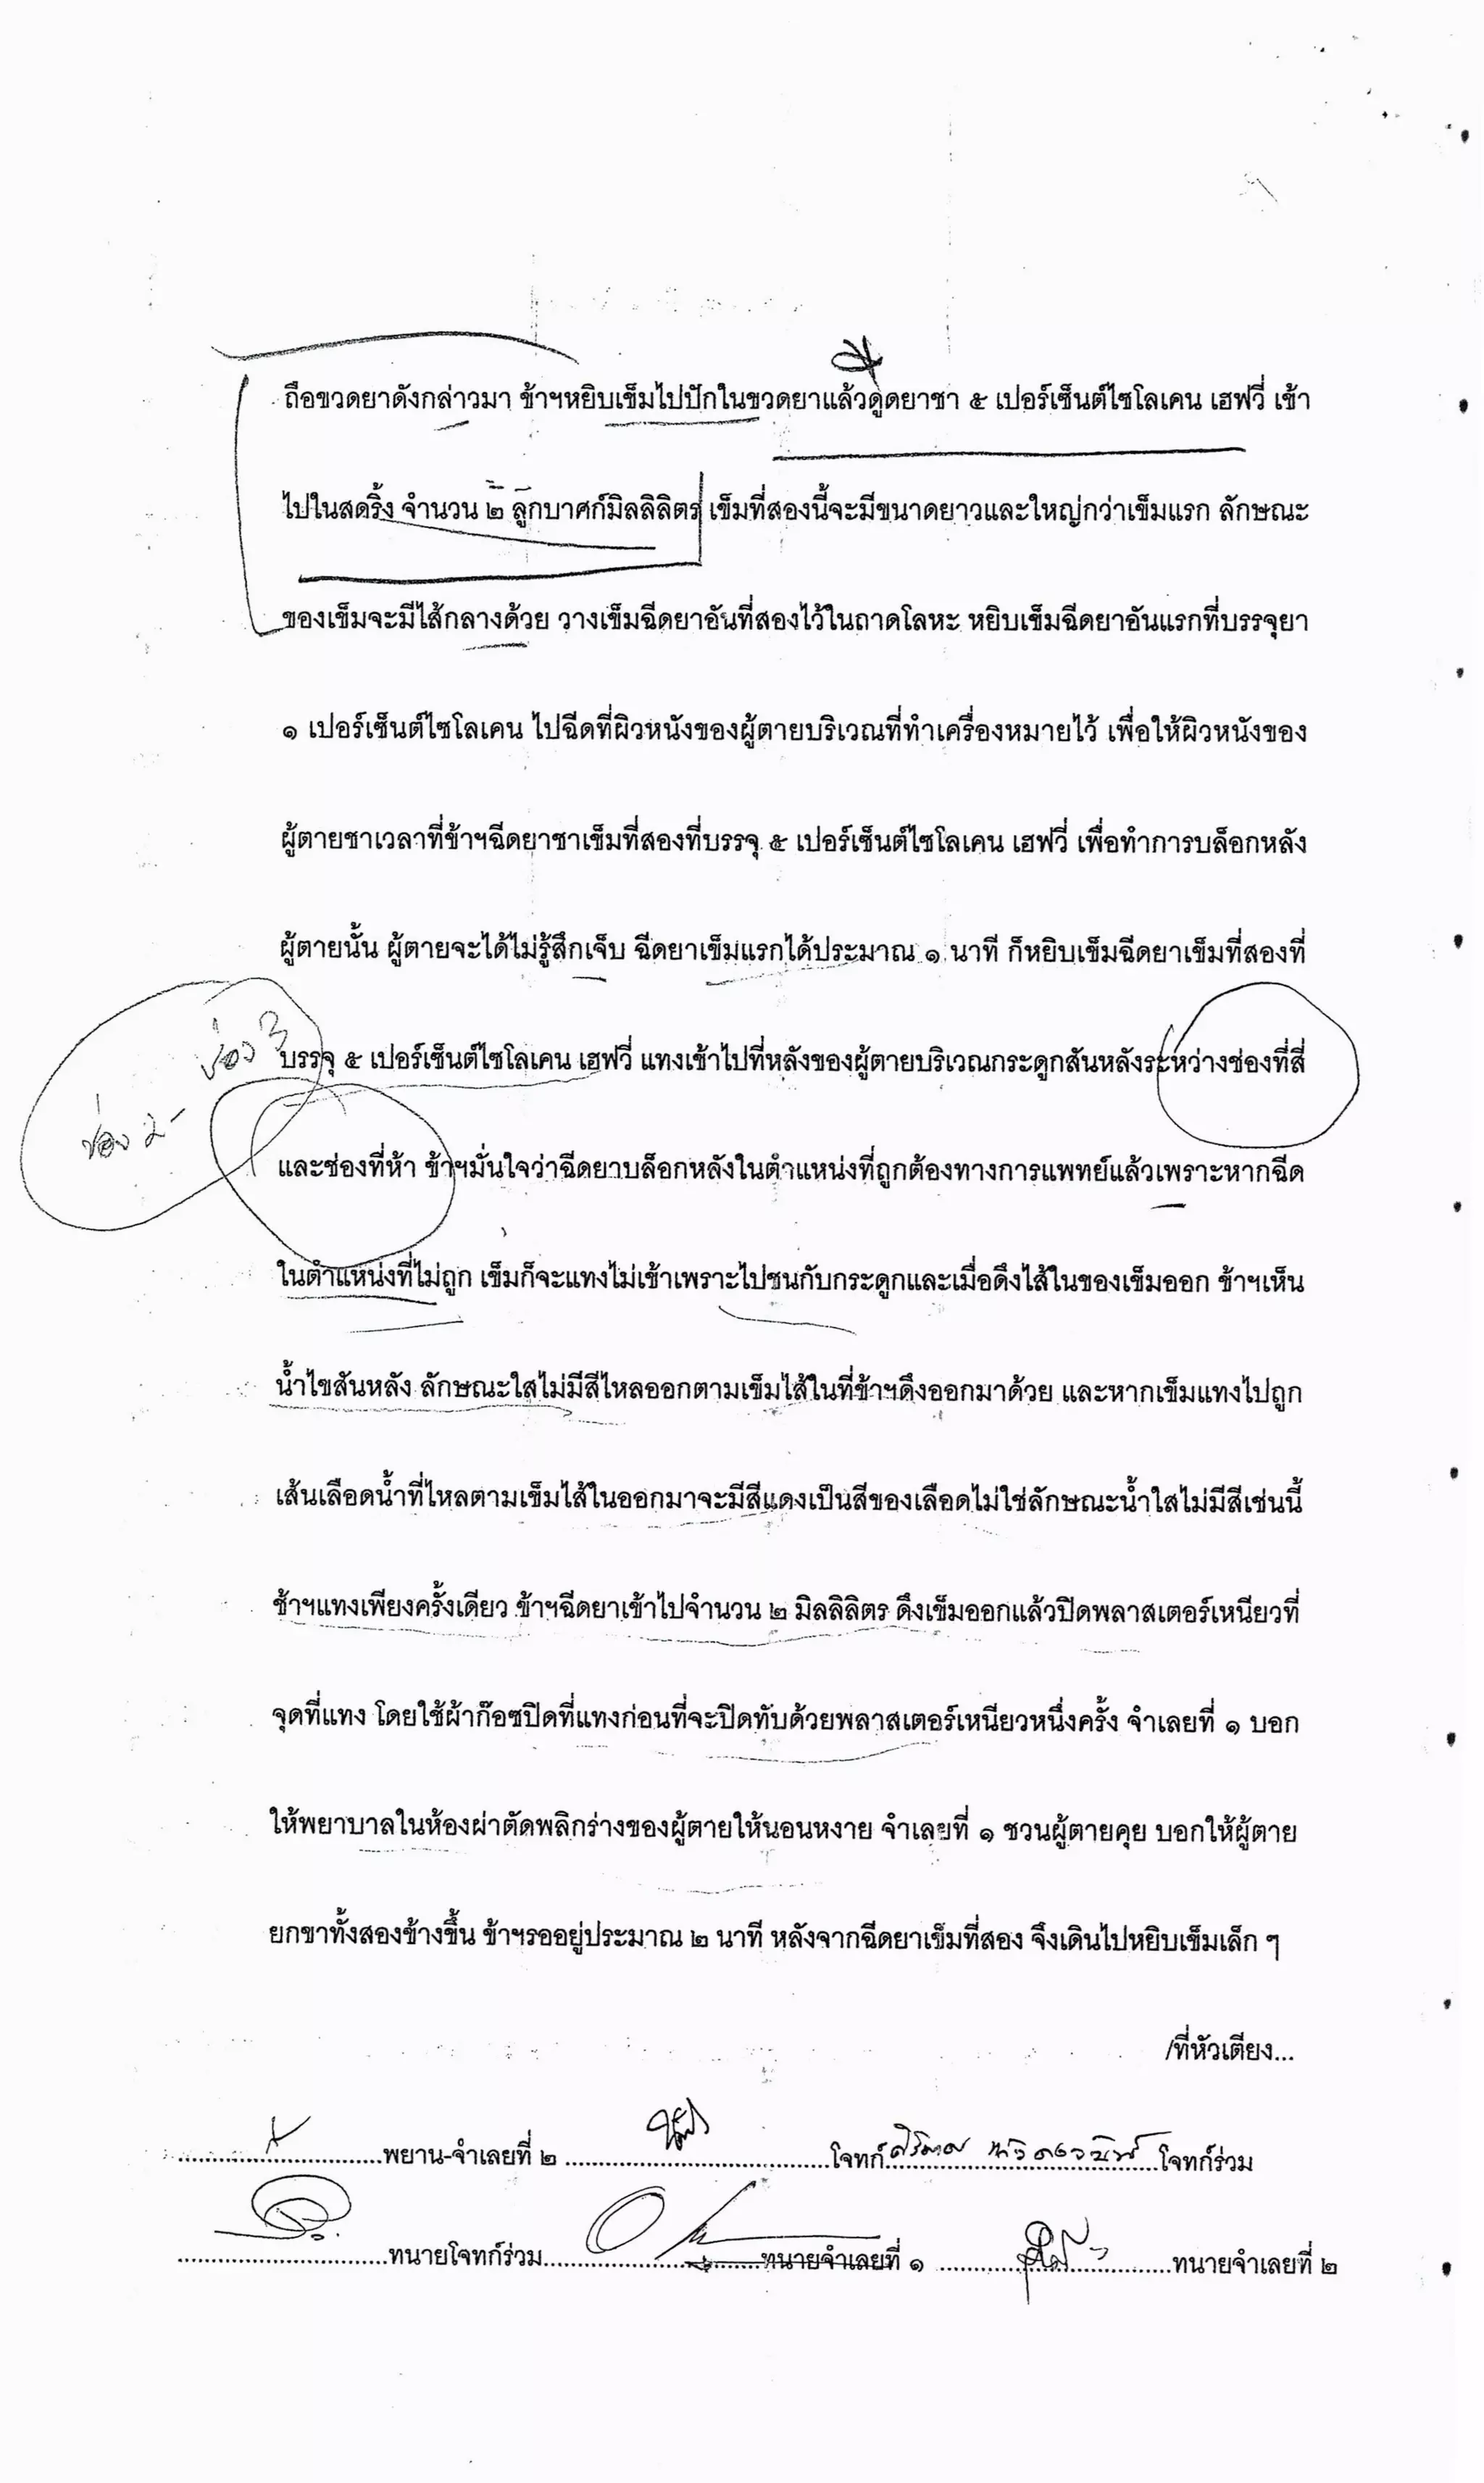 ถือขวดยาดังกล่าวมา ข้าฯหยิบเข็มไปปักในขวดยาแล้วดูดยาชา ๕ เปอร์เซ็นต์ไซโลเคน เฮฟวี่ เข้า
ไปในสดริ้ง จำนวน ๒ ลูกบาศก์มิลลิลิตร เข็มที่สองนี้จะมีขนาดยาวและใหญ่กว่าเข็มแรก ลักษณะ
ของเข็มจะมีไส้กลางด้วย วางเข็มฉีดยาอันที่สองไว้ในถาดโลหะ หยิบเข็มฉีดยาอันแรกที่บรรจุยา
๑ เปอร์เซ็นต์ไซโลเคน ไปฉีดที่ผิวหนังของผู้ตายบริเวณที่ทำเครื่องหมายไว้ เพื่อให้ผิวหนังของ
ผู้ตายชาเวลาที่ข้าฯฉีดยาชาเข็มที่สองที่บรรจุ ๕ เปอร์เซ็นต์ไซโลเคน เฮฟวี่ เพื่อทำการบล็อกหลัง
ผู้ตายนั้น ผู้ตายจะได้ไม่รู้สึกเจ็บ ฉีดยาเข็มแรกได้ประมาณ ๑ นาที ก็หยิบเข็มฉีดยาเข็มที่สองที่
ช่อง 3
บรรจุ ๕ เปอร์เซ็นต์ไซโลเคน เฮฟวี่ แทงเข้าไปที่หลังของผู้ตายบริเวณกระดูกสันหลังระหว่างช่องที่สี่
ช่อง 2
และช่องที่ห้า ข้าฯมั่นใจว่าฉีดยาบล็อกหลังในตำแหน่งที่ถูกต้องทางการแพทย์แล้วเพราะหากฉีด
ในตำแหน่งที่ไม่ถูก เข็มก็จะแทงไม่เข้าเพราะไปชนกับกระดูกและเมื่อดึงไส้ในของเข็มออก ข้าฯเห็น
น้ำไขสันหลัง ลักษณะใสไม่มีสีไหลออกตามเข็มไส้ในที่ข้าฯดึงออกมาด้วย และหากเข็มแทงไปถูก
เส้นเลือดน้ำที่ไหลตามเข็มไส้ในออกมาจะมีสีแดงเป็นสีของเลือดไม่ใช่ลักษณะน้ำใสไม่มีสีเช่นนี้
ข้าฯแทงเพียงครั้งเดียว ข้าฯฉีดยาเข้าไปจำนวน ๒ มิลลิลิตร ดึงเข็มออกแล้วปิดพลาสเตอร์เหนียวที่
จุดที่แทง โดยใช้ผ้าก๊อซปิดที่แทงก่อนที่จะปิดทับด้วยพลาสเตอร์เหนียวหนึ่งครั้ง จำเลยที่ ๑ บอก
ให้พยาบาลในห้องผ่าตัดพลิกร่างของผู้ตายให้นอนหงาย จำเลยที่ ๑ ชวนผู้ตายคุย บอกให้ผู้ตาย
ยกขาทั้งสองข้างขึ้น ข้าฯรออยู่ประมาณ ๒ นาที หลังจากฉีดยาเข็มที่สอง จึงเดินไปหยิบเข็มเล็ก ๆ
/ที่หัวเตียง...
..............................พยาน-จำเลยที่ ๒ .......................................โจทก์........................................โจทก์ร่วม
...............................ทนายโจทก์ร่วม................................ทนายจำเลยที่ ๑ ..................................ทนายจำเลยที่ ๒